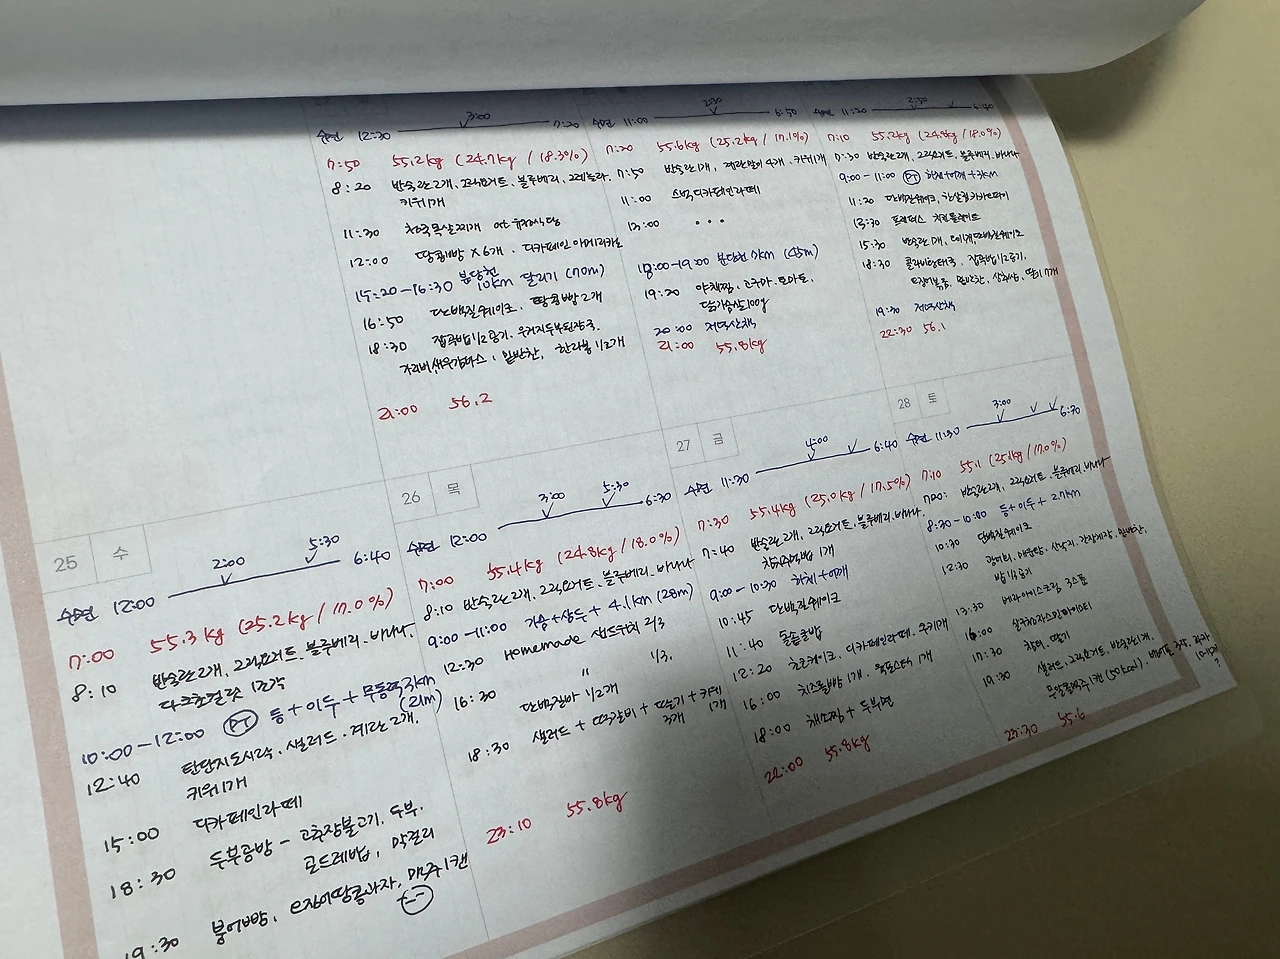 수면 12:30 3:00 7:20
7:50 55.2kg (24.7kg / 18.3%)
8:20 반숙란2개, 그릭요거트, 블루베리, 그래놀라,
키위1개
11:30
12:00 땅콩빵 x6개, 디카페인 아메리카노
분당천
15:20-16:30 10km 달리기 (70m)
16:50 단백질쉐이크, 땅콩빵 2개
18:30 잡곡밥1/2공기, 우거지두부된장국,
밑반찬, 한라봉 1/2개
21:00 56.2
수면 11:00 2:30 6:50
7:20 55.6kg (25.2kg / 17.1%)
7:50 반숙란1개, 계란말이 4개, 키위1개
11:00 스벅디카페인라떼
13:00 ...
18:00-19:00 분당천 7km (45m)
19:20 야채찜, 고구마, 토마토,
닭가슴살100g
20:00 저녁산책
21:00 55.8kg
수면 11:20 2:50 6:40
7:10 55.2kg (24.8kg / 18.0%)
7:30 반숙란2개, 그릭요거트, 블루베리, 바나나
9:00-11:00 PT 하체+어깨+3km
11:20 단백질쉐이크,
13:30
15:30 반숙란1개, 단백질쉐이크
18:30 잡곡밥1/2공기,
오징어볶음, 밑반찬,
19:30 저녁산책
22:30 56.1
25 수
수면 12:00 2:00 5:30 6:40
7:00 55.3kg (25.2kg / 17.0%)
8:10 반숙란2개, 그릭요거트, 블루베리, 바나나,
다크초콜릿 1조각
10:00-12:00 PT 등+이두+무동력3km
(21m)
12:40 탄단지도시락, 샐러드, 계란2개,
키위1개
15:00 디카페인라떼
18:30 두부공방 - 고추장불고기, 두부,
곤드레밥, 막걸리
19:30 붕어빵, 오징어땅콩과자, 맥주1캔
26 목
수면 12:00 3:00 5:30 6:30
7:00 55.4kg (24.8kg / 18.0%)
8:10 반숙란2개, 그릭요거트, 블루베리, 바나나
9:00-11:00 가슴+삼두+4.1km (28m)
12:30 Homemade 샌드위치 2/3
16:30 " 1/3,
단백질바 1/2개
18:30 샐러드 + 떡갈비 + 딸기 + 키위
3개 1개
23:10 55.8kg
27 금
수면 11:30 4:00 6:40
7:30 55.4kg (25.0kg / 17.5%)
7:40 반숙란2개, 그릭요거트, 블루베리, 바나나,
1개
9:00-10:30 하체+어깨
10:45 단백질쉐이크
11:40 돌솥굴밥
12:20 초코케이크, 디카페인라떼, 쿠키1개
16:00 치즈롤빵 1개, 1개
18:00 채소찜 + 두부면
22:00 55.8kg
28 토
수면 11:30 3:00 6:20
7:10 55.1 (17.0%)
7:20: 반숙란2개, 그릭요거트, 블루베리, 바나나
8:30-10:00 등+이두+2.7km
10:30 단백질쉐이크
12:30 매운탕, 산낙지, 간장게장, 밑반찬,
밥1/3공기
13:30 아이스크림 3스푼
16:00
17:30 딸기
19:30 샐러드, 그릭요거트, 반숙란1개,
23:30 55.6